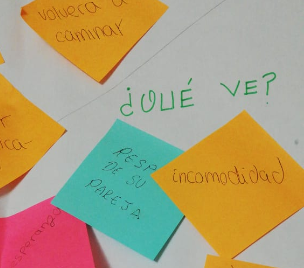 volverá a
caminar
¿QUÉ VE?
RESP
DE SU
PAREJA
incomodidad